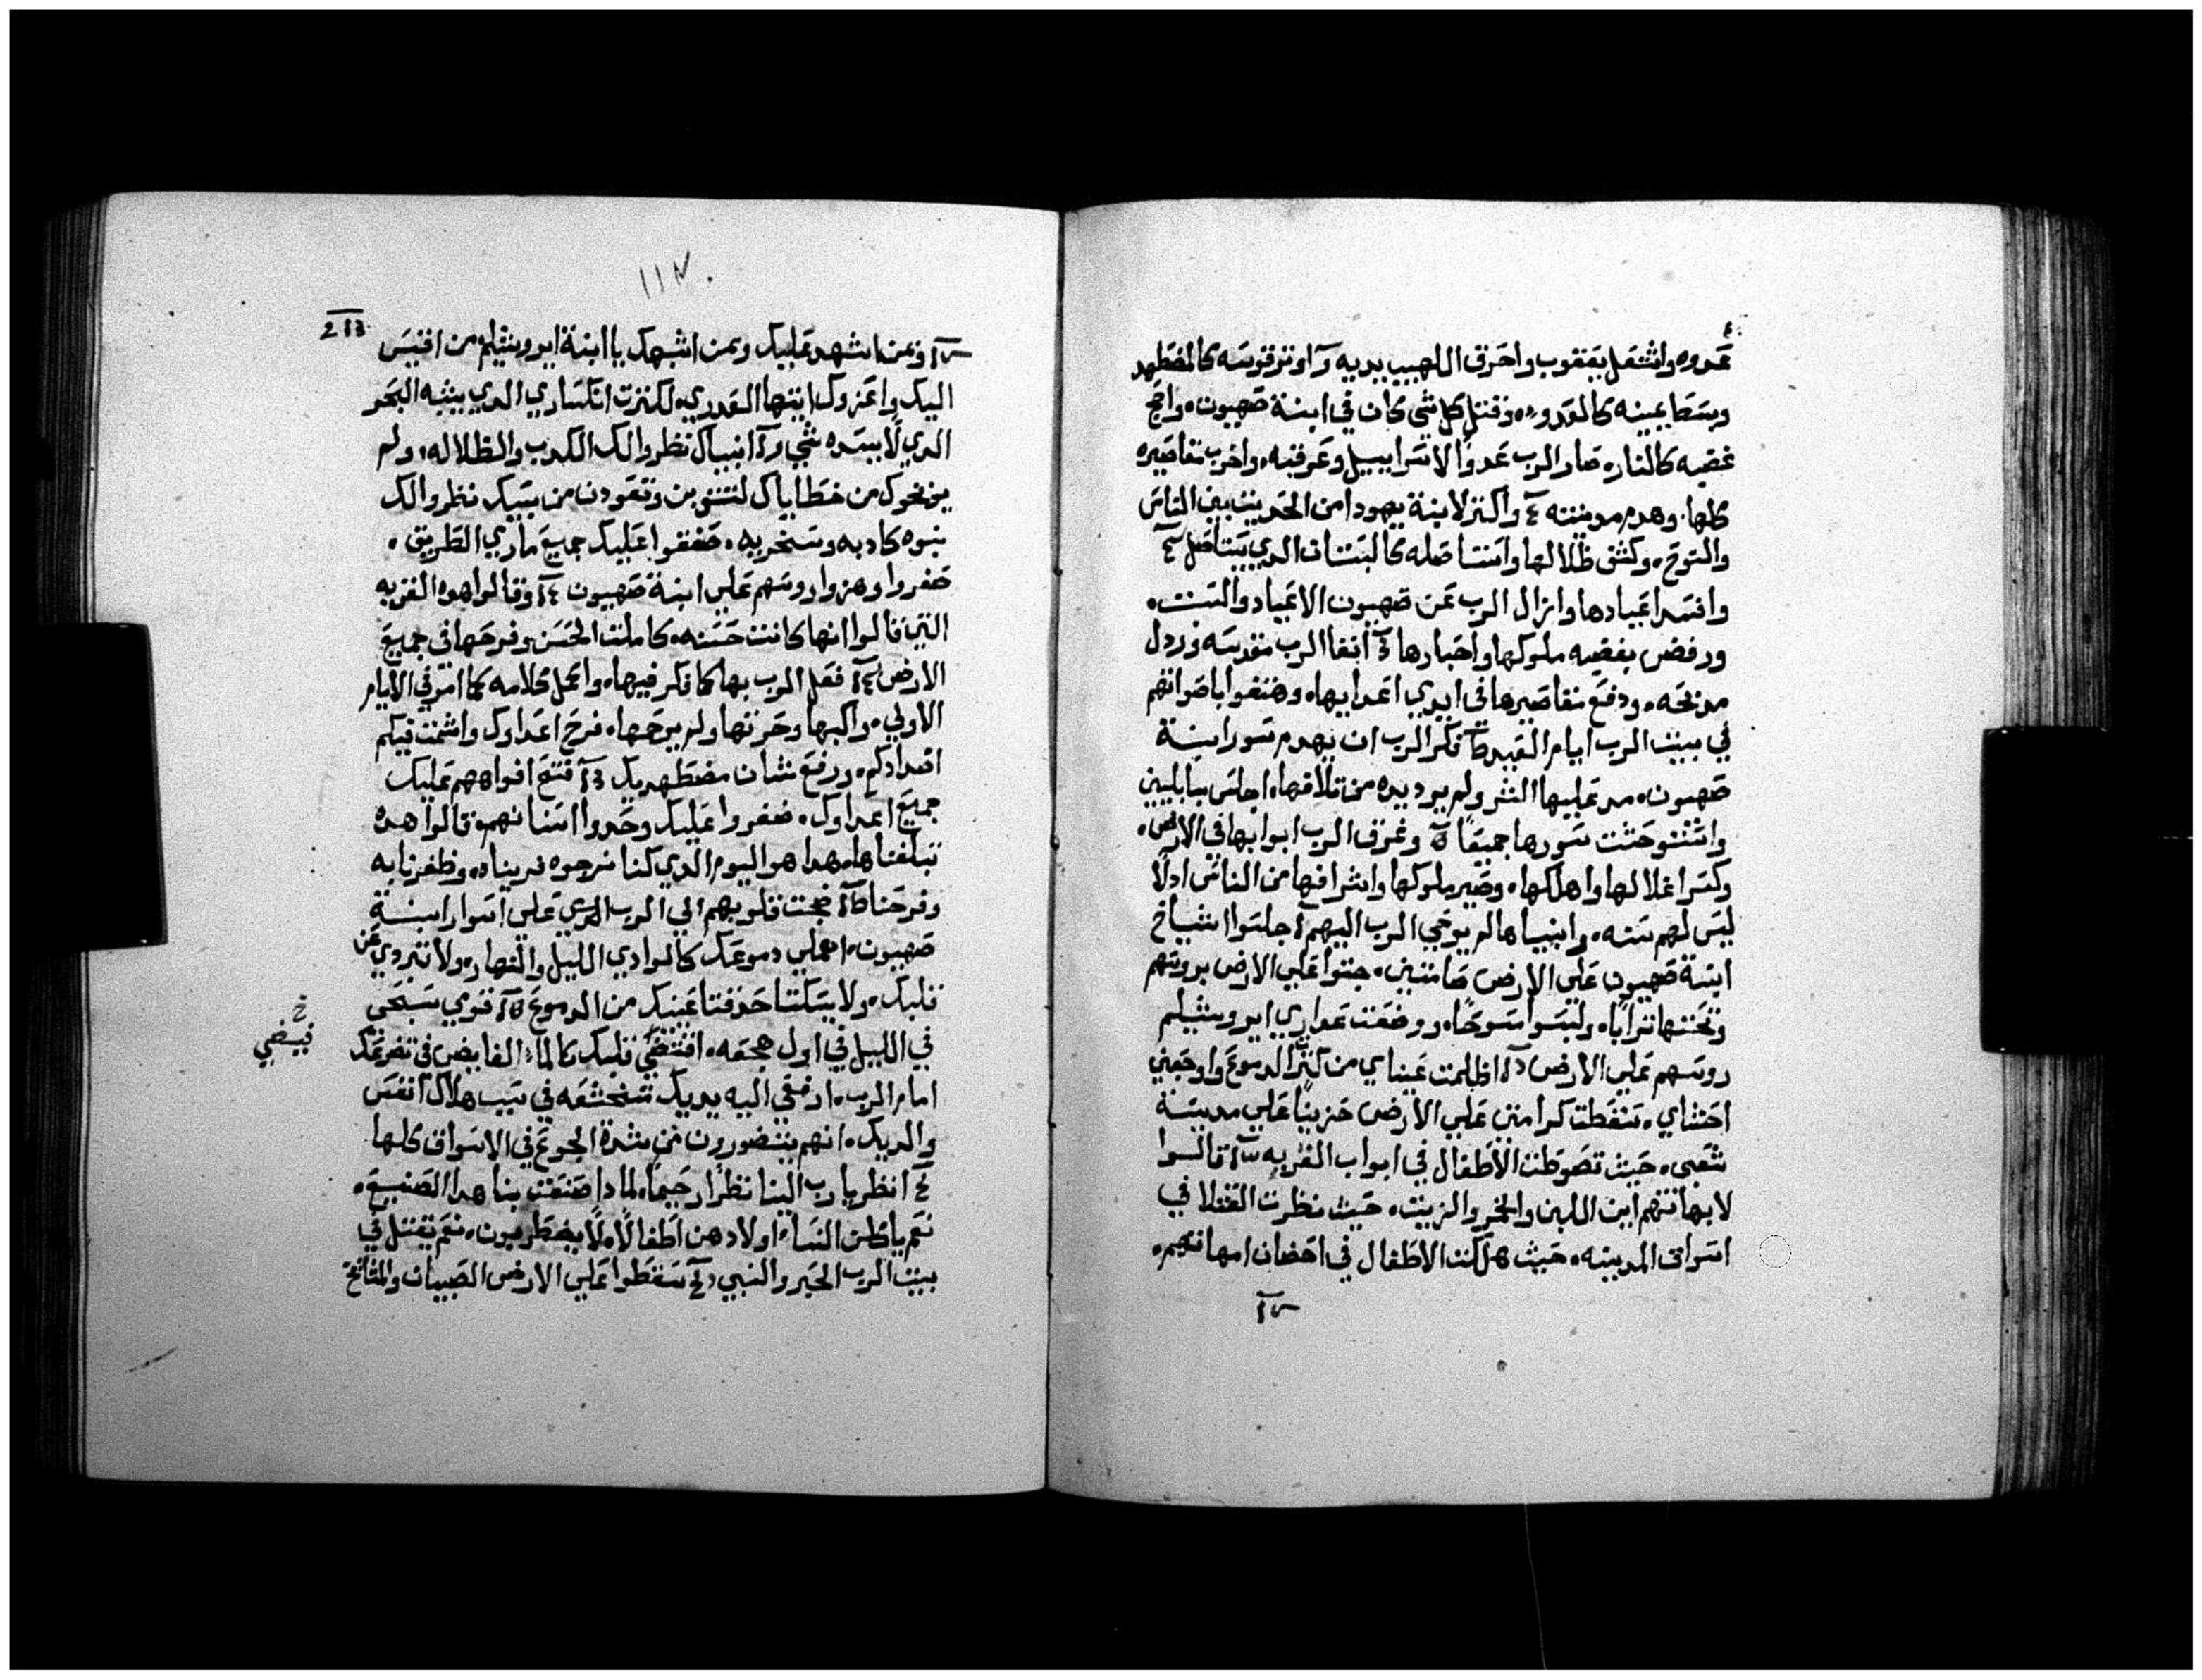 عدوه واشتعل بيعقوب واحرق اللهيب يديه د اوتر قوسه كالمضطهد
وبسط يمينه كالعدو وقتل كل شي كان في ابنة صهيون واضج
غضبه كالنار صار الرب عدوًا لاسراييل وغرقه واخرب مقاصيره
كلها وهدم مدينته واكثر لابنة يهودا من الحديث بين الناس
والنوح وكشف ظلالها واستاصله كالبستان الدي يستاصل
وافسد اعيادها وازال الرب عن صهيون الاعياد والسبت
ورفض بغضبه ملوكها واحبارها انفا الرب مقدسه ورذل
مدبحه ودفع مقاصيرها في ايدي اعدايها وهتفوا باصواتهم
في بيت الرب ايام العيد فكر الرب ان يهدم سور ابنة
صهيون مد عليها الشر ولم يرد يده من تلافها اجلس
واستوحشت سورها جميعًا وغرق الرب ابوابها في الارض
وكسر اغلالها واهلكها وصير ملوكها واشرافها من الناس ادلا
ليس لهم سنه وانبياها لم يوحي الرب اليهم جلسوا اشياخ
ابنة صهيون علي الارض صامتين جتوا علي الارض بروسهم
وتحتها ترابًا ولبسوا مسوحًا ووضعت عداري ايروشليم
روسهم علي الارض اظلمت عيناي من كثرة الدموع واوجعني
احشاي سقطت كرامتي علي الارض حزينًا علي مدينة
شعبي حيث تصوطت الاطفال في ابواب القريه قالوا
لامهاتهم اين اللبن والخمر والزيت حيث نظرت القتلا في
اسواق المدينه حيث هلكت الاطفال في احضان امهاتهم
213
وبمن اشهد عليك وبمن اشبهك يا ابنة ايروشليم من اقيس
اليك واعزوك ايتها العدري لكترت انكساري الدي يشبه البحر
الدي لا يسده شي انبياك نظروا لك الكدب والظلاله ولم
يخبروك من خطاياك لتتوبين وتعودن من سبيك نظروا لك
نبوه كادبه وسخريه صفقوا عليك جميع ماري الطريق
صفروا وهزوا روسهم علي ابنة صهيون وقالوا هده القريه
التي قالوا انها كانت حسنه كاملت الحسن وفرحها في جميع
الارض فعل الرب بها كما فكر فيها واكمل كلامه كما امر في الايام
الاولي واكبها وحزنها ولم يرحمها فرح اعداوك واشمت فيكم
اضدادكم ورفع شان مضطهديك فتح افواههم عليك
جميع اعداوك صفروا عليك وحدوا اسنانهم وقالوا هده
نبلغناها هدا هو اليوم الدي كنا نرجوه قريناه وظفرنا به
وفرحنا ضجت قلوبهم الي الرب الدي علي اسوار ابنة
صهيون اهملي دموعك كالوادي الليل والنهار ولا تبردي عن
قلبك ولا يسكتا حدقتا عينك من الدموع قومي سبحي
في الليل في اول هجعه افتضي قلبك كالماء الفايض في تضرعك
امام الرب ارفعي اليه يديك متخشعه في سبب هلاك انفس
والديك انهم يتضورون من شدة الجوع في الاسواق كلها
انظر يا رب الينا نظرًا رحيمًا لمادا صنعت بنا هدا الصنيع
نعم ياكلن النساء اولادهن اطفالاً نعم يقتل في
بيت الرب الحبر والنبي سقطوا علي الارض الصبيان والمشايخ
خ
فيضي